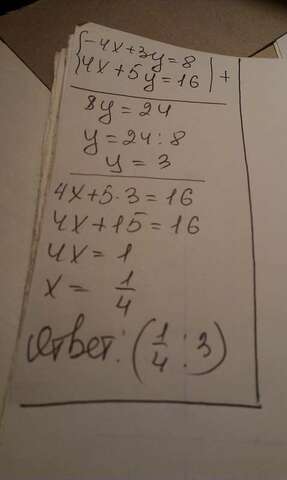 {-4x+3y=8
{4x+5y=16 | +
8y=24
y=24:8
y=3
4x+5·3=16
4x+15=16
4x=1
x= 1/4
Ответ: (1/4 : 3)